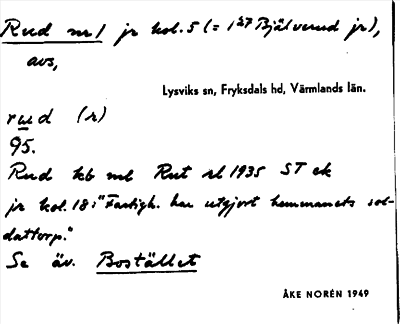 Rud nr 1 jr kol. 5 (= 1:27 Bjälverud jr),
avs,
Lysviks sn, Fryksdals hd, Värmlands län.
rud (r)
95.
Rud kb ml Rut rl 1935 ST ek
jr kol. 18: "Fastigh. har utgjort hemmanets sol-
dattorp."
Se äv. Bostället
ÅKE NORÉN 1949